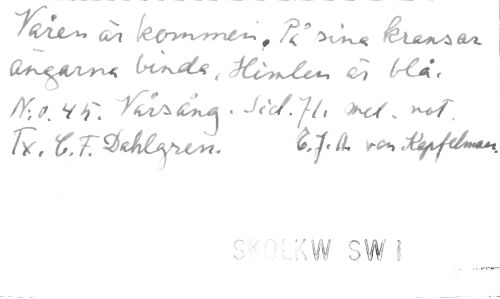 Våren är kommen, På sina kransar
ängarna binda, Himlen är blå.
N:o. 45. Vårsång. Sid. 71. mel. not.
Tx. C. F. Dahlgren. C. J. A. von Kapfelman.
SKOLKW SW 1